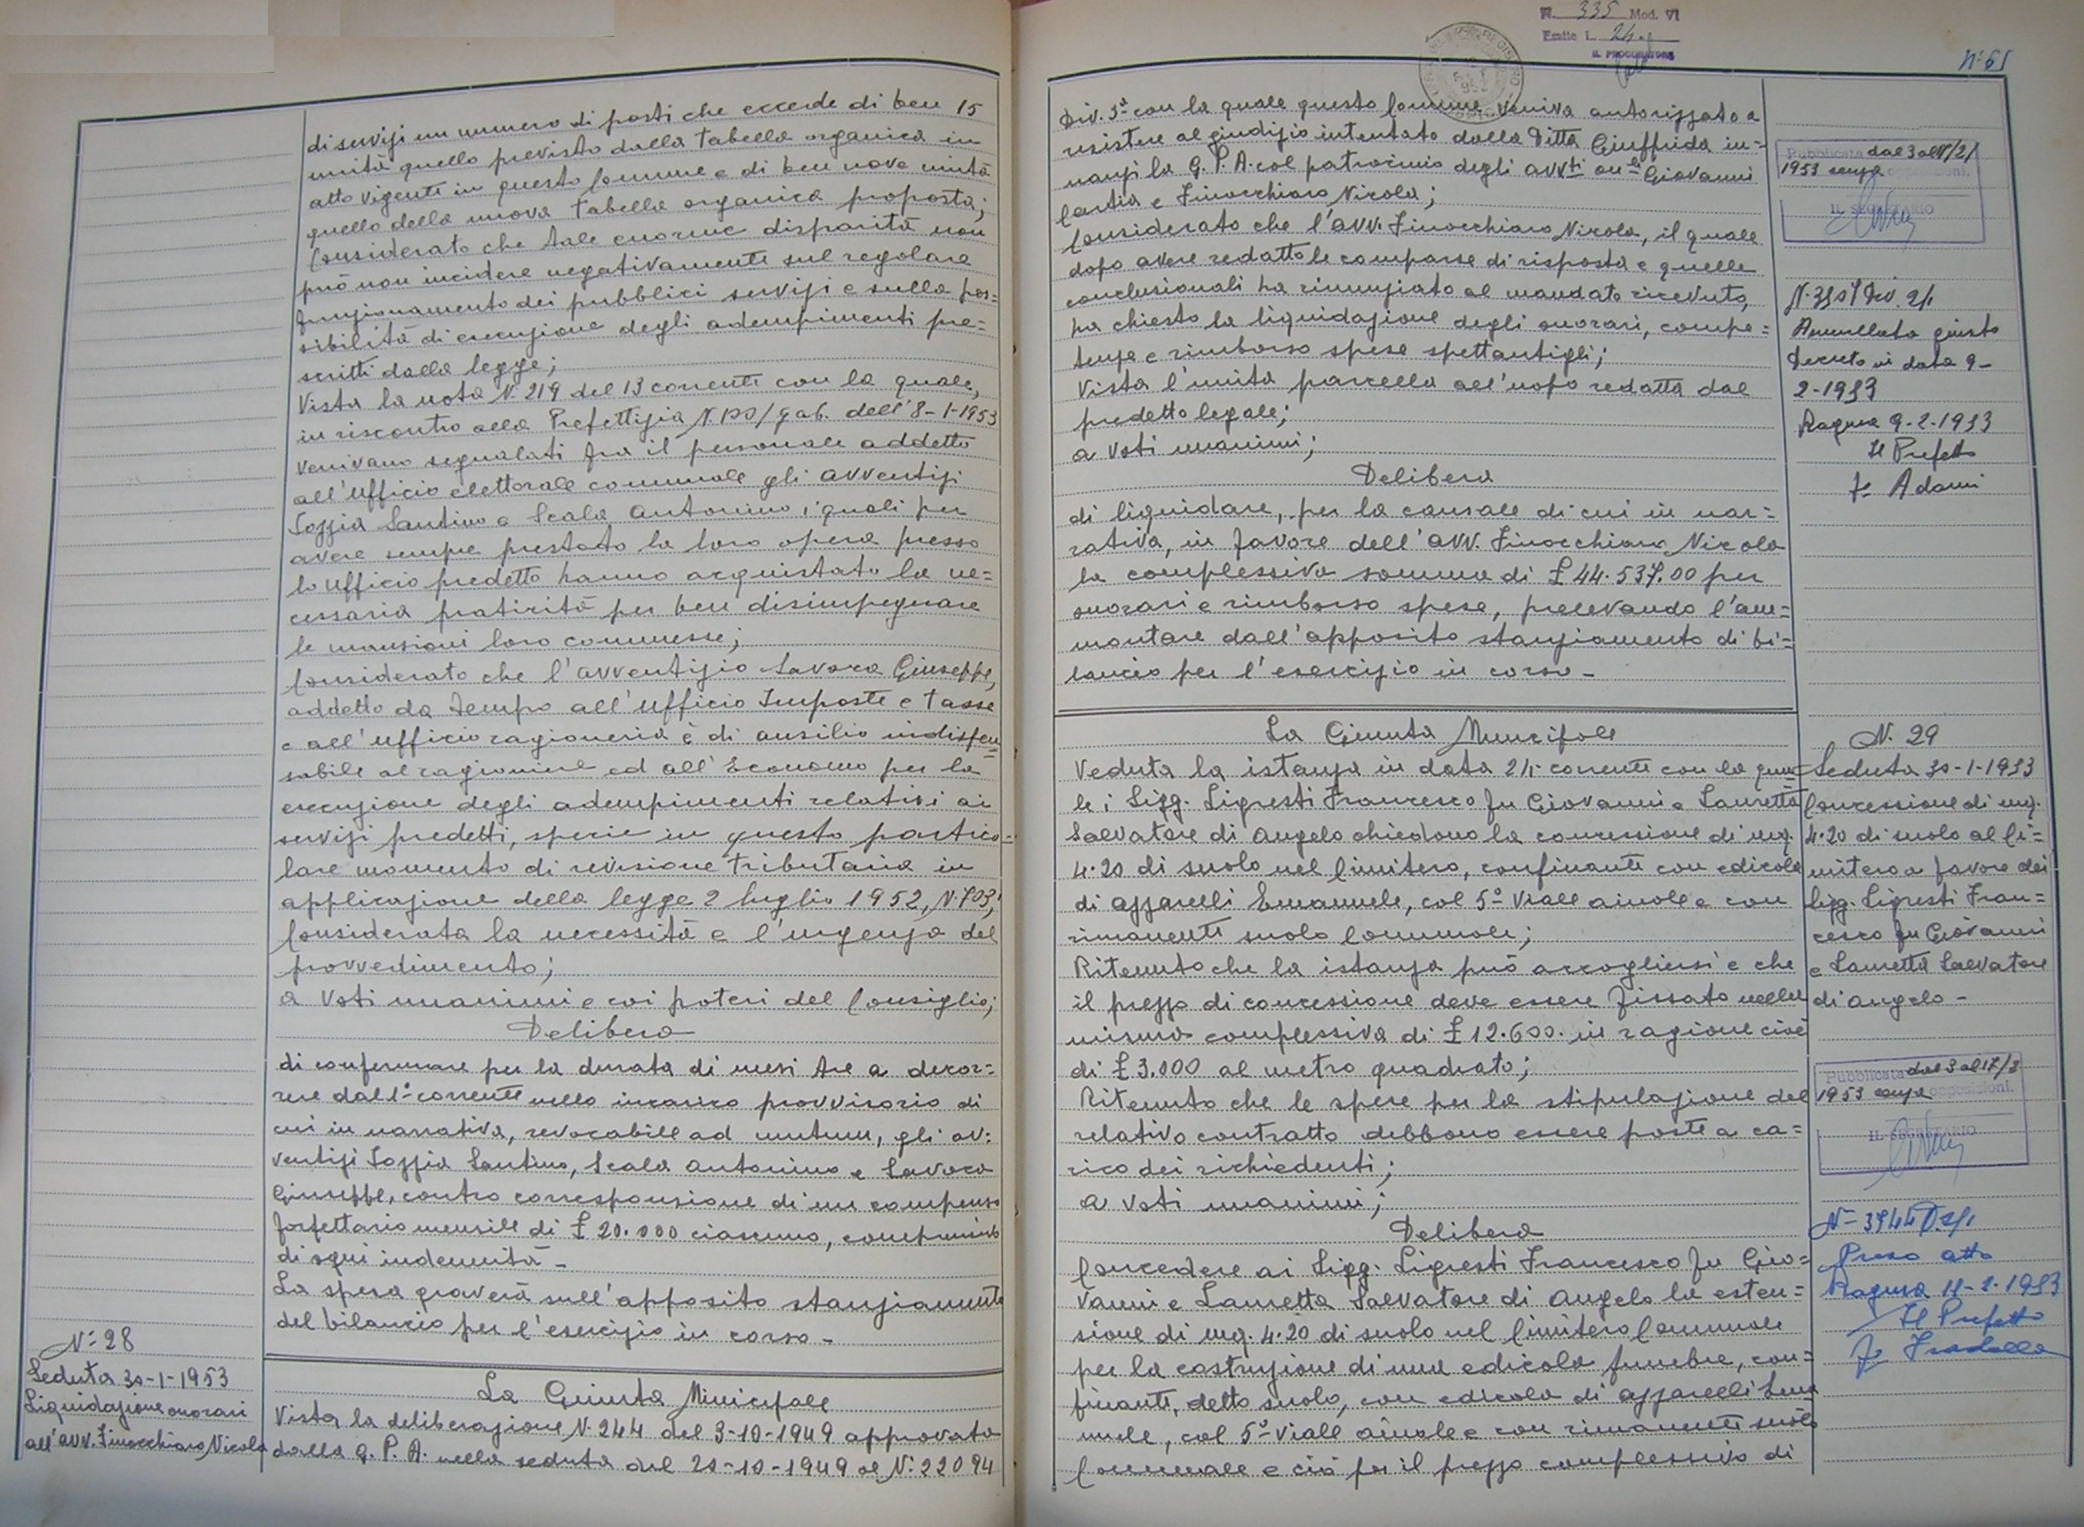 di servizi un numero di posti che eccede di ben 15
unità quello previsto dalla tabella organica in
atto vigente in questo Comune e di ben nove unità
quello della nuova tabella organica proposta;
Considerato che tale enorme disparità non
può non incidere negativamente sul regolare
funzionamento dei pubblici servizi e sulla pos=
sibilità di esecuzione degli adempimenti pre=
scritti dalla legge;
Vista la nota N. 219 del 13 corrente con la quale,
in riscontro alla Prefettizia N. /gab. dell'8-1-1953
venivano segnalati fra il personale addetto
all'Ufficio elettorale comunale gli avventizi
Santino e Scala Antonino, i quali per
avere sempre prestato la loro opera presso
lo ufficio predetto hanno acquistato la ne=
cessaria praticità per ben disimpegnare
le mansioni loro commesse;
Considerato che l'avventizio Lavora Giuseppe,
addetto da tempo all'ufficio Imposte e tasse
e all'ufficio ragioneria è di ausilio indispen=
sabile al ragioniere ed all'Economo per la
esecuzione degli adempimenti relativi ai
servizi predetti, specie in questo partico=
lare momento di revisione tributaria in
applicazione della legge 2 luglio 1952, N. 703;
Considerata la necessità e l'urgenza del
provvedimento;
a voti unanimi e coi poteri del Consiglio;
Delibera
di confermare per la durata di mesi tre a decor=
rere dall'1° corrente nello incarico provvisorio di
cui in narrativa, revocabile ad nutum, gli av=
ventizi Santino, Scala Antonino e Lavora
Giuseppe, contro corresponsione di un compenso
forfettario mensile di £ 20.000 ciascuno, comprensivo
di ogni indennità -
La spesa graverà sull'apposito stanziamento
del bilancio per l'esercizio in corso -
N= 28
Seduta 30-1-1953
Liquidazione onorari
all'avv. Finocchiaro Nicola
La Giunta Municipale
Vista la deliberazione N. 244 del 3-10-1949 approvata
dalla G. P. A. nella seduta del 20-10-1949 al N. 22094
N. 335 Mod. VI
Esatte L. 24
IL PROCURATORE
N. 61
Div. 3ª con la quale questo Comune veniva autorizzato a
resistere al giudizio intentato dalla Ditta Giuffrida in=
nanzi la G. P. A. col patrocinio degli avvti onle Giovanni
Cartia e Finocchiaro Nicola;
Considerato che l'avv. Finocchiaro Nicola, il quale
dopo avere redatto le comparse di risposta e quelle
conclusionali ha rinunziato al mandato ricevuto,
ha chiesto la liquidazione degli onorari, compe=
tenze e rimborso spese spettantigli;
Vista l'unita parcella all'uopo redatta dal
predetto legale;
a voti unanimi;
Delibera
di liquidare, per la causale di cui in nar=
rativa, in favore dell'avv. Finocchiaro Nicola
la complessiva somma di £ 44.537.00 per
onorari e rimborso spese, prelevando l'am=
montare dall'apposito stanziamento di bi=
lancio per l'esercizio in corso -
Pubblicata dal 3 al
1953 senza opposizioni.
IL SEGRETARIO
Annullata giusto
decreto in data 9-
2-1953
Ragusa 9-2-1953
Il Prefetto
f° Adami
La Giunta Municipale
Veduta la istanza in data corrente con la qua=
le i Sigg. Ligresti Francesco fu Giovanni e Lauretta
Salvatore di Angelo chiedono la concessione di mq.
4.20 di suolo nel Cimitero, confinante con edicola
di Azzarelli Emanuele, col 5° Viale aiuole e con
rimanente suolo Comunale;
Ritenuto che la istanza può accogliersi e che
il prezzo di concessione deve essere fissato nella
misura complessiva di £ 12.600. in ragione cioè
di £ 3.000 al metro quadrato;
Ritenuto che le spese per la stipulazione del
relativo contratto debbono essere poste a ca=
rico dei richiedenti;
a voti unanimi;
Delibera
Concedere ai Sigg. Ligresti Francesco fu Gio=
vanni e Lauretta Salvatore di Angelo la esten=
sione di mq. 4.20 di suolo nel Cimitero Comunale
per la costruzione di una edicola funebre, con=
finante, detto suolo, con edicola di Azzarelli Ema
nuele, col 5° Viale aiuole e con rimanente suolo
Comunale e ciò per il prezzo complessivo di
N. 29
Seduta 30-1-1953
Concessione di mq.
4.20 di suolo al Ci=
mitero a favore dei
Sigg. Ligresti Fran=
cesco fu Giovanni
e Lauretta Salvatore
di Angelo -
Pubblicata dal 3 al 17/3
1953 senza opposizioni.
IL SEGRETARIO
Preso atto
Ragusa
Il Prefetto